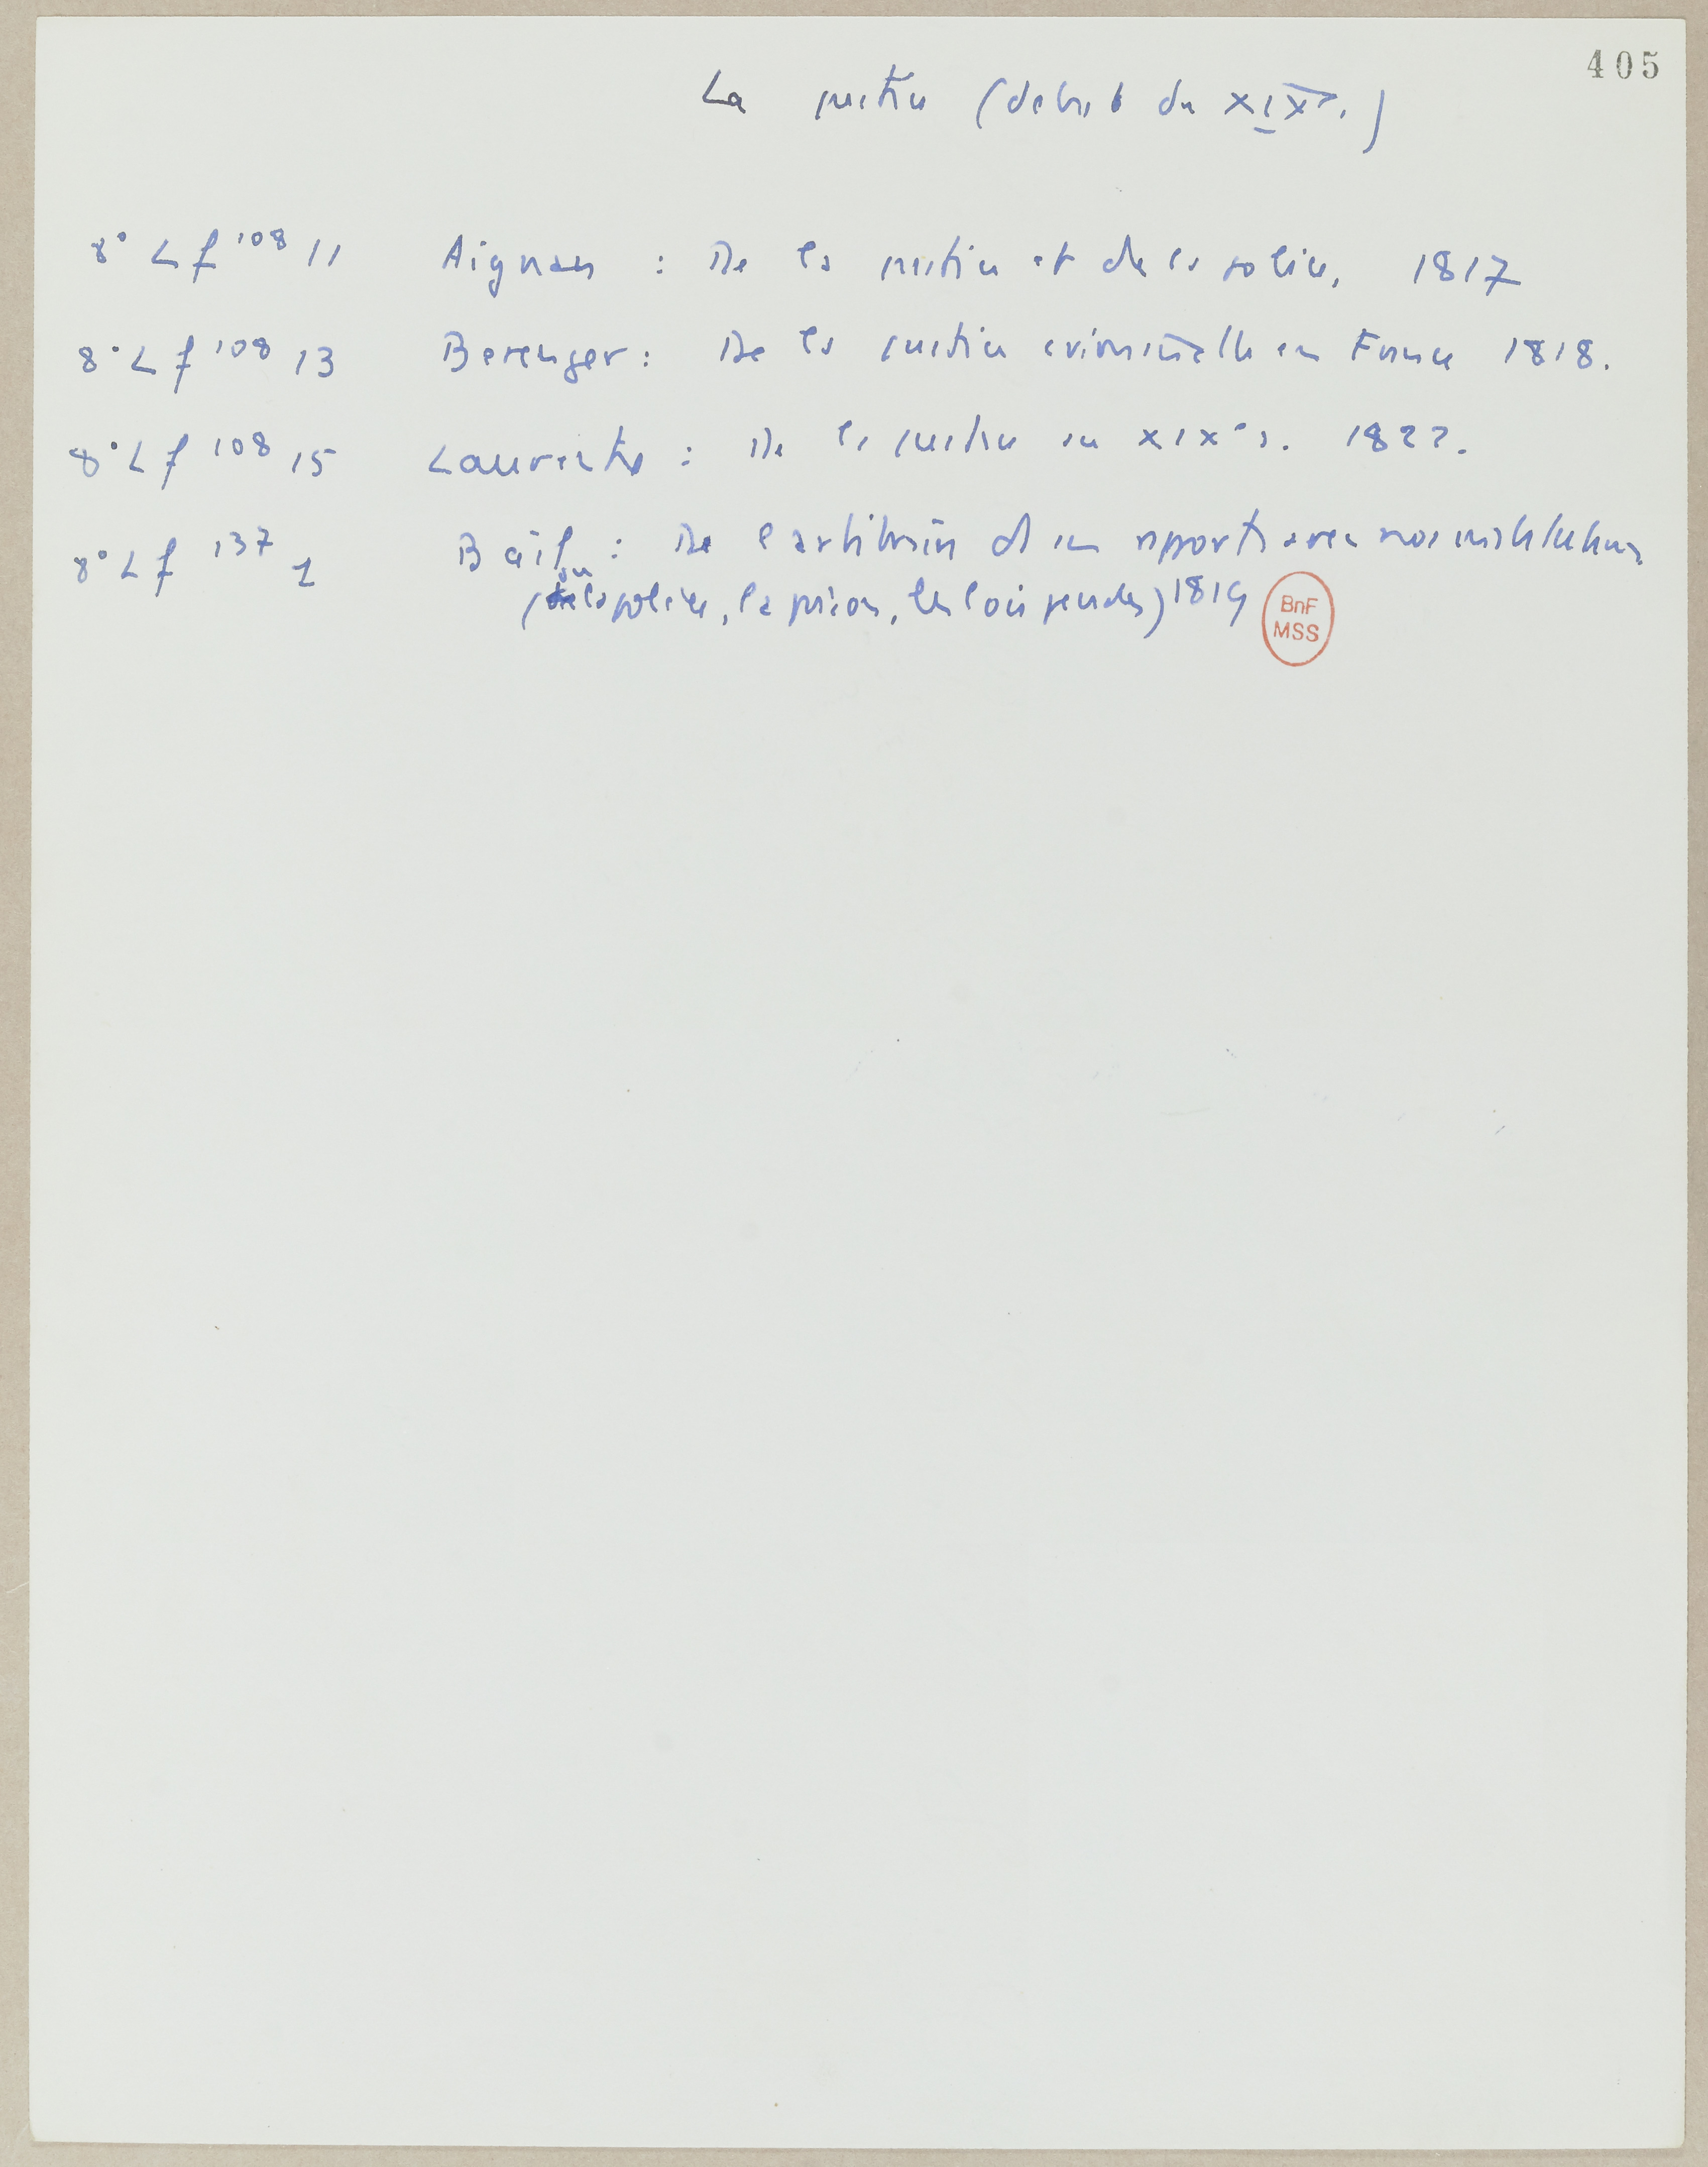 405
La justice (début du XIXe s.)
8° Lf 108 11 Aignan : De la justice et de la police, 1817
8° Lf 108 13 Berenger : De la justice criminelle en France 1818.
8° Lf 108 15 Laurentie : De la justice au XIXe s. 1822.
8° Lf 137 1 Bail : De l'arbitraire et ses rapports avec nos institutions
(sur la police, la prison, les lois pénales) 1819
BnF
MSS